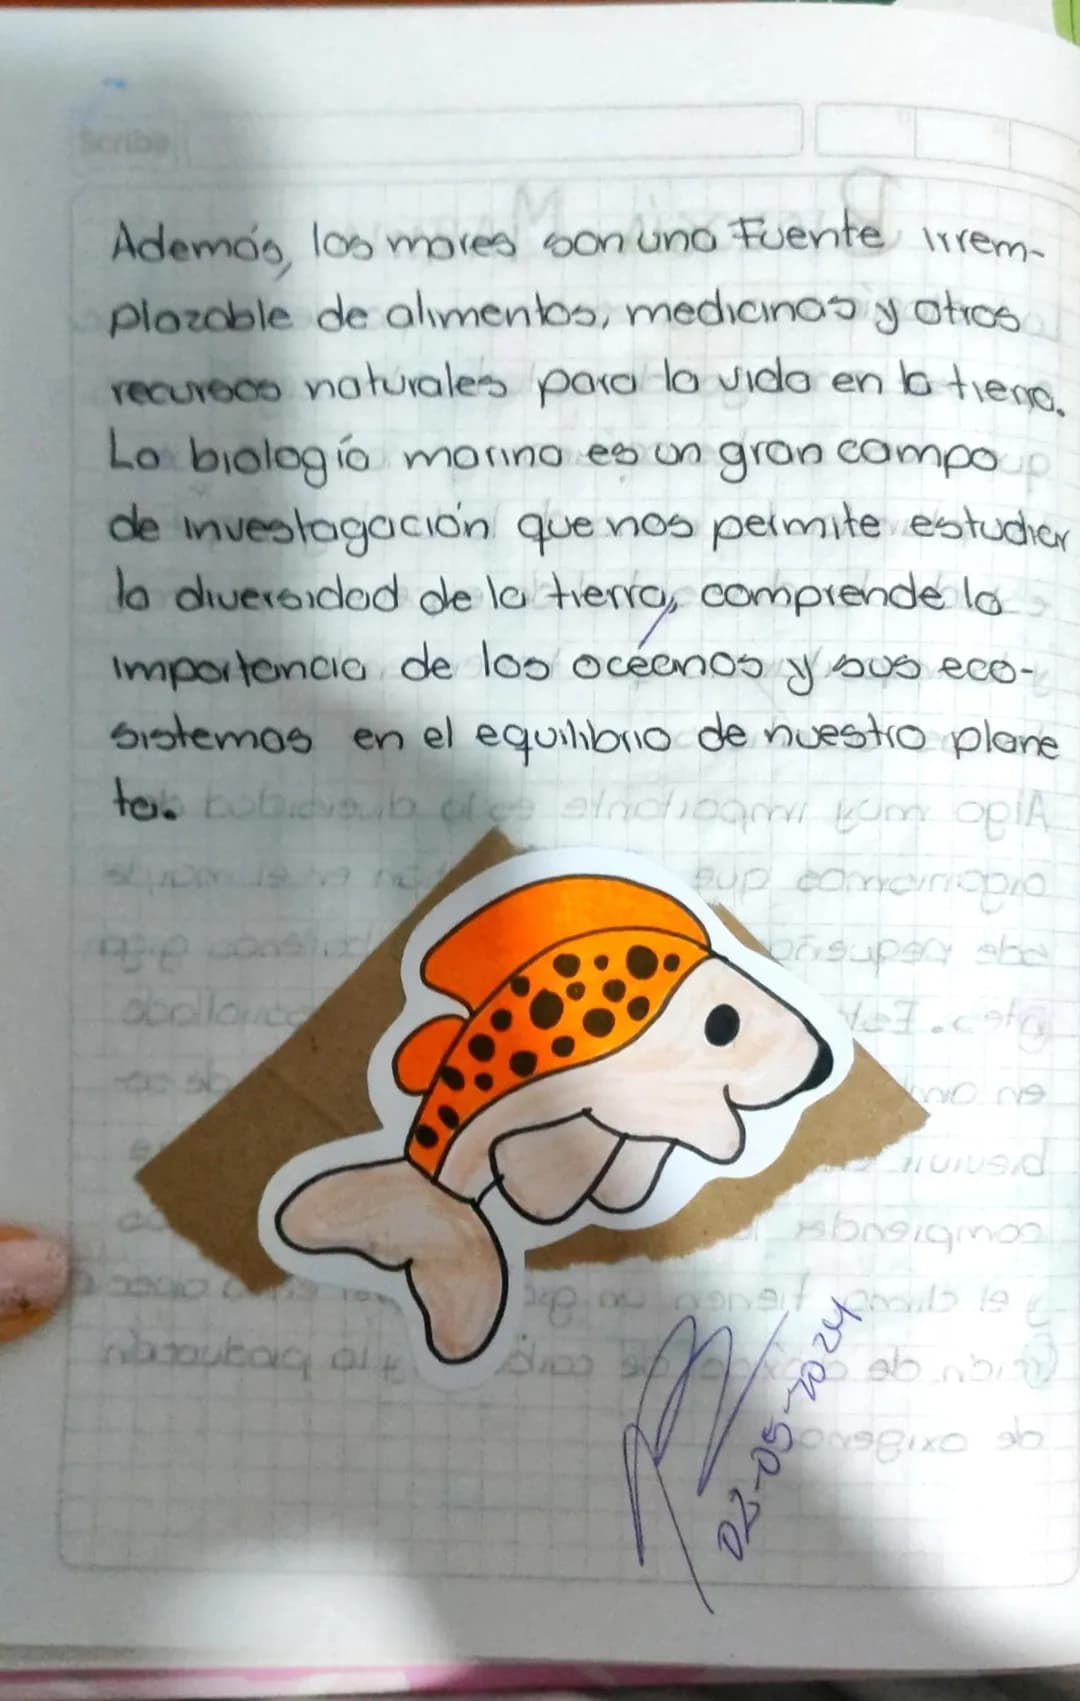 Scribe
Además, los mares son una Fuente irrem-
plazable de alimentos, medicinas y otros
recursos naturales para la vida en la tierra.
La biología marina es un gran campo
de investagación que nos permite estudiar
la diversidad de la tierra, comprende la
importancia de los océanos y sus eco-
sistemas en el equilibrio de nuestro plane
ta.
02-05-2024